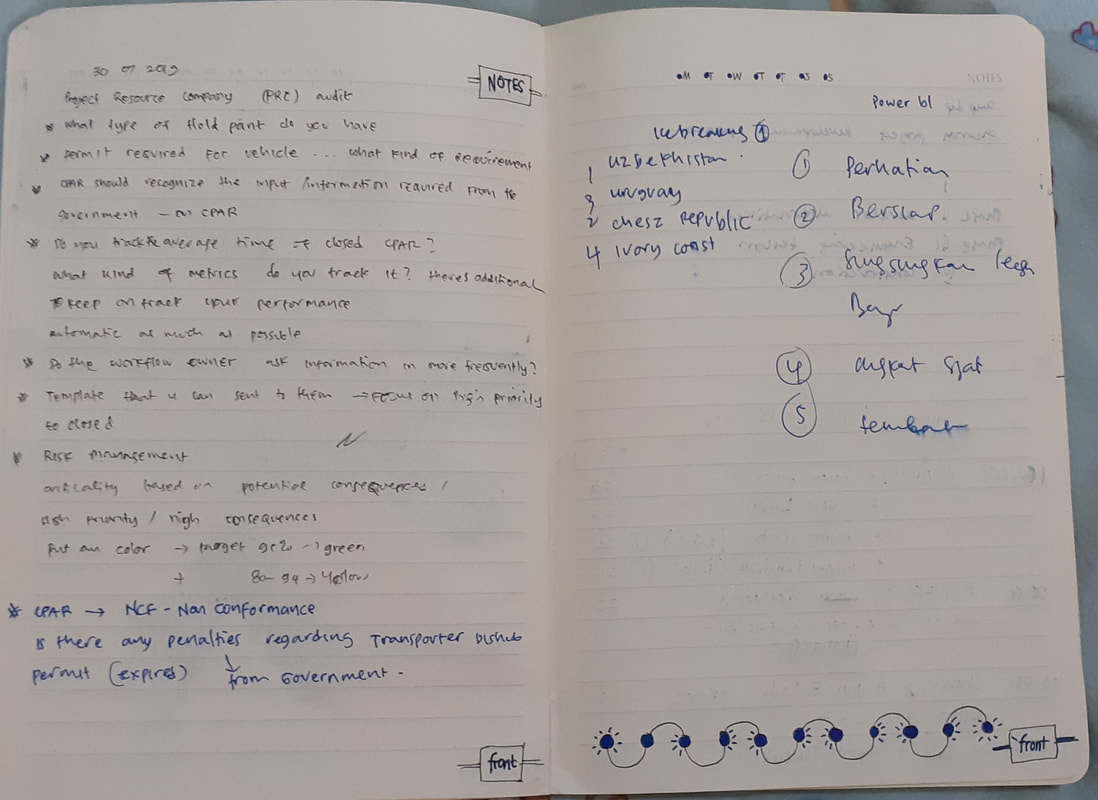 30 07 2019
NOTES
Project Resource Company (PRC) audit
* what type of Hold point do you have
* permit required for vehicle ... what kind of Requirement
* CPAR should recognize the input /information required from the
government – on CPAR
* Do you track average time of closed CPAR?
what kind of metrics do you track it? theres additional
keep on track your performance
automatic as much as possible
* Do the workflow owner ask information in more frequently?
* Template that u can sent to them → Focus on high priority
to closed
* Risk Management
criticality based on potential consequences /
high priority / high consequences
Put on color → target → green
→ Yellow
* CPAR → NCF - Non Conformance
is there any penalties regarding Transporter Dishub
permit (expires) ↓ from Government -
front
M T W T F S S
NOTES
Power bI
Icebreaking 1
1 Uzbekhistan
3 uruguay
2 chesz Republic
4 Ivory coast
1 Perhatian
2 Bersiap.
3 Singsingkan
4 angkat
5 tembak
front